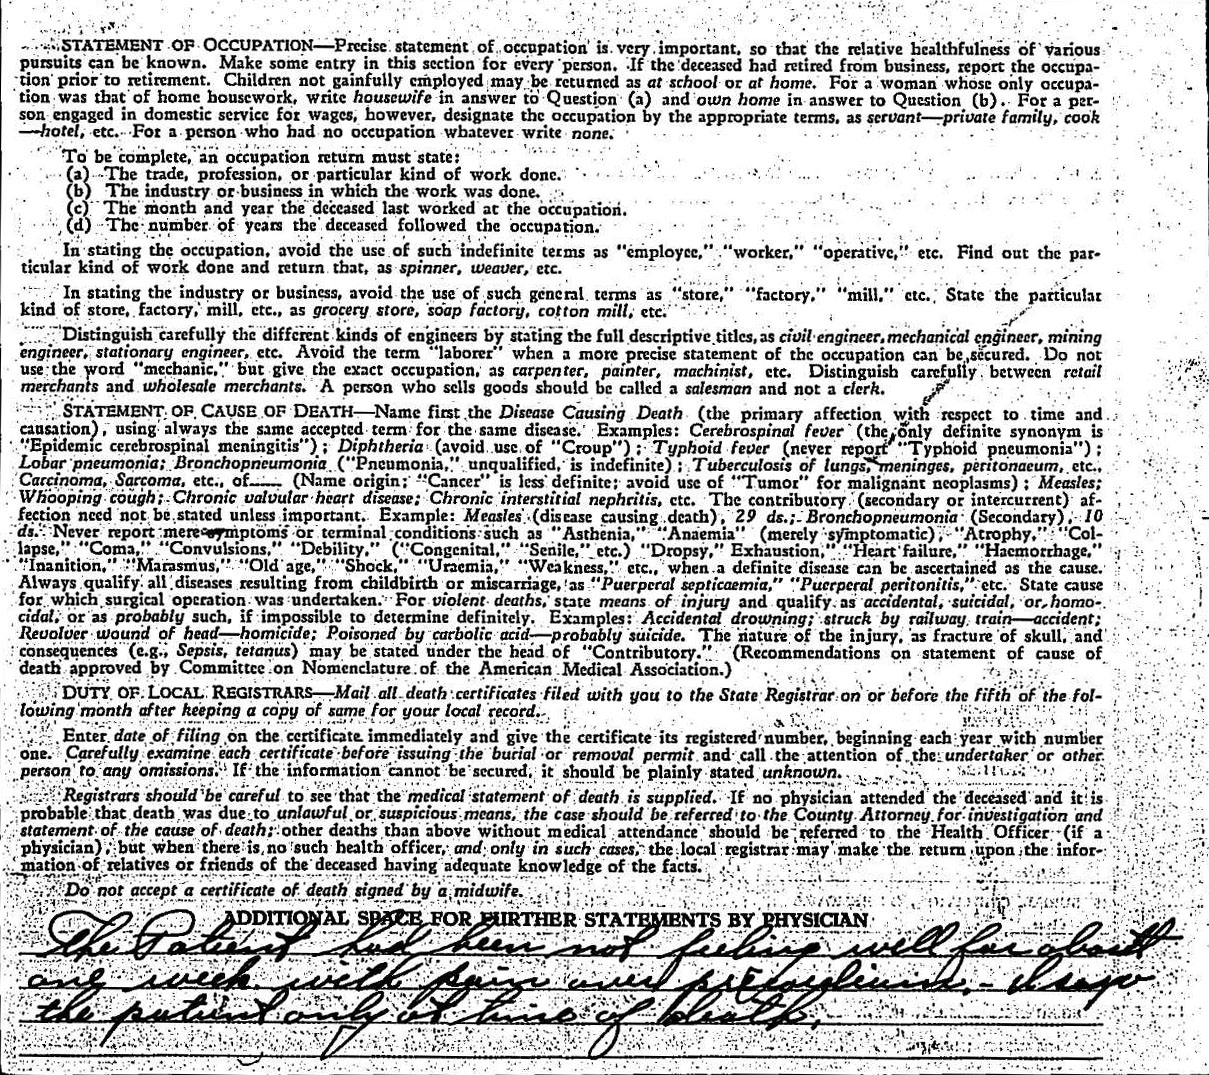 STATEMENT OF OCCUPATION—Precise statement of occupation is very important, so that the relative healthfulness of various
pursuits can be known. Make some entry in this section for every person. If the deceased had retired from business, report the occupa-
tion prior to retirement. Children not gainfully employed may be returned as at school or at home. For a woman whose only occupa-
tion was that of home housework, write housewife in answer to Question (a) and own home in answer to Question (b). For a per-
son engaged in domestic service for wages, however, designate the occupation by the appropriate terms, as servant—private family, cook
—hotel, etc. For a person who had no occupation whatever write none.
To be complete, an occupation return must state:
(a) The trade, profession, or particular kind of work done.
(b) The industry or business in which the work was done.
(c) The month and year the deceased last worked at the occupation.
(d) The number of years the deceased followed the occupation.
In stating the occupation, avoid the use of such indefinite terms as "employee," "worker," "operative," etc. Find out the par-
ticular kind of work done and return that, as spinner, weaver, etc.
In stating the industry or business, avoid the use of such general terms as "store," "factory," "mill," etc. State the particular
kind of store, factory, mill, etc., as grocery store, soap factory, cotton mill, etc.
Distinguish carefully the different kinds of engineers by stating the full descriptive titles, as civil engineer, mechanical engineer, mining
engineer, stationary engineer, etc. Avoid the term "laborer" when a more precise statement of the occupation can be secured. Do not
use the word "mechanic," but give the exact occupation, as carpenter, painter, machinist, etc. Distinguish carefully between retail
merchants and wholesale merchants. A person who sells goods should be called a salesman and not a clerk.
STATEMENT OF CAUSE OF DEATH—Name first the Disease Causing Death (the primary affection with respect to time and
causation), using always the same accepted term for the same disease. Examples: Cerebrospinal fever (the only definite synonym is
"Epidemic cerebrospinal meningitis"); Diphtheria (avoid use of "Croup"); Typhoid fever (never report "Typhoid pneumonia");
Lobar pneumonia; Bronchopneumonia ("Pneumonia," unqualified, is indefinite); Tuberculosis of lungs, meninges, peritonaeum, etc.,
Carcinoma, Sarcoma, etc., of____ (Name origin; "Cancer" is less definite; avoid use of "Tumor" for malignant neoplasms); Measles;
Whooping cough; Chronic valvular heart disease; Chronic interstitial nephritis, etc. The contributory (secondary or intercurrent) af-
fection need not be stated unless important. Example: Measles (disease causing death), 29 ds.; Bronchopneumonia (Secondary), 10
ds. Never report mere symptoms or terminal conditions such as "Asthenia," "Anaemia" (merely symptomatic), "Atrophy," "Col-
lapse," "Coma," "Convulsions," "Debility," ("Congenital," "Senile," etc.) "Dropsy," Exhaustion," "Heart failure," "Haemorrhage,"
"Inanition," "Marasmus," "Old age," "Shock," "Uraemia," "Weakness," etc., when a definite disease can be ascertained as the cause.
Always qualify all diseases resulting from childbirth or miscarriage, as "Puerperal septicaemia," "Puerperal peritonitis," etc. State cause
for which surgical operation was undertaken. For violent deaths, state means of injury and qualify as accidental, suicidal, or homo-
cidal, or as probably such, if impossible to determine definitely. Examples: Accidental drowning; struck by railway train—accident;
Revolver wound of head—homicide; Poisoned by carbolic acid—probably suicide. The nature of the injury, as fracture of skull, and
consequences (e.g., Sepsis, tetanus) may be stated under the head of "Contributory." (Recommendations on statement of cause of
death approved by Committee on Nomenclature of the American Medical Association.)
DUTY OF LOCAL REGISTRARS—Mail all death certificates filed with you to the State Registrar on or before the fifth of the fol-
lowing month after keeping a copy of same for your local record.
Enter date of filing on the certificate immediately and give the certificate its registered number, beginning each year with number
one. Carefully examine each certificate before issuing the burial or removal permit and call the attention of the undertaker or other
person to any omissions. If the information cannot be secured, it should be plainly stated unknown.
Registrars should be careful to see that the medical statement of death is supplied. If no physician attended the deceased and it is
probable that death was due to unlawful or suspicious means, the case should be referred to the County Attorney for investigation and
statement of the cause of death; other deaths than above without medical attendance should be referred to the Health Officer (if a
physician), but when there is no such health officer, and only in such cases, the local registrar may make the return upon the infor-
mation of relatives or friends of the deceased having adequate knowledge of the facts.
Do not accept a certificate of death signed by a midwife.
ADDITIONAL SPACE FOR FURTHER STATEMENTS BY PHYSICIAN
The Patient had been not feeling well for about
one week with pain over precordium. - I saw
the patient only at time of death.